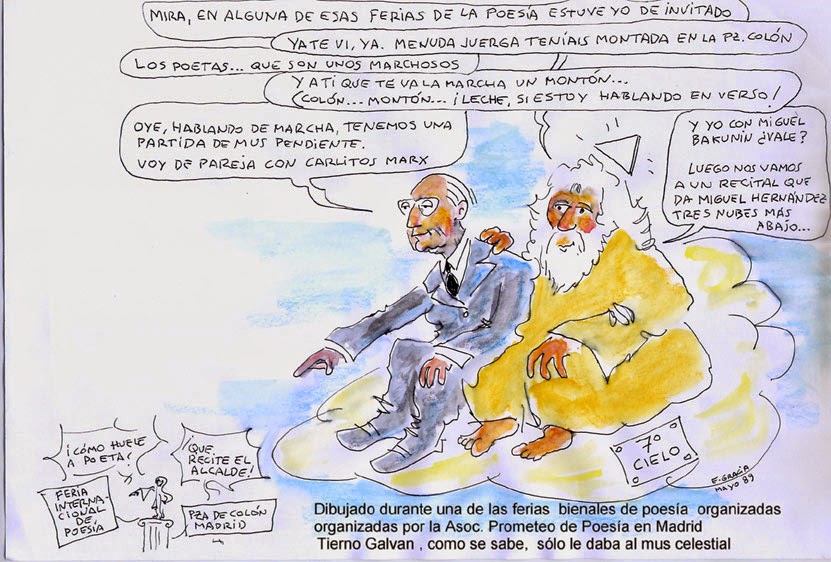 MIRA, EN ALGUNA DE ESAS FERIAS DE LA POESÍA ESTUVE YO DE INVITADO
YA TE VI, YA. MENUDA JUERGA TENÍAIS MONTADA EN LA PZ. COLÓN
LOS POETAS... QUE SON UNOS MARCHOSOS
Y A TI QUE TE VA LA MARCHA UN MONTÓN...
COLÓN... MONTÓN... ¡LECHE, SI ESTOY HABLANDO EN VERSO!
OYE, HABLANDO DE MARCHA, TENEMOS UNA
PARTIDA DE MUS PENDIENTE.
VOY DE PAREJA CON CARLITOS MARX
Y YO CON MIGUEL
BAKUNIN ¿VALE?
LUEGO NOS VAMOS
A UN RECITAL QUE
DA MIGUEL HERNÁNDEZ
TRES NUBES MÁS
ABAJO...
¡CÓMO HUELE
A POETA!
QUE
RECITE EL
ALCALDE!
FERIA
INTERNA-
CIONAL
DE
POESÍA
PZA DE COLÓN
MADRID
7º
CIELO
E. GRACIA
MAYO 89
Dibujado durante una de las ferias bienales de poesía organizadas
organizadas por la Asoc. Prometeo de Poesía en Madrid
Tierno Galvan , como se sabe, sólo le daba al mus celestial